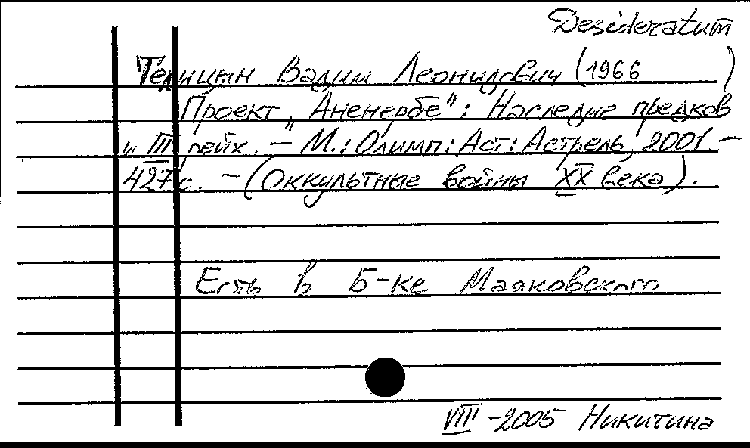 Desideratum
Телицын Вадим Леонидович (1966 )
Проект „Аненербе“: Наследие предков
и III рейх. – М.: Олимп: Аст: Астрель, 2001. –
427 с. – (Оккультные войны XX века).
Есть в Б-ке Маяковского
VIII -2005 Никитина